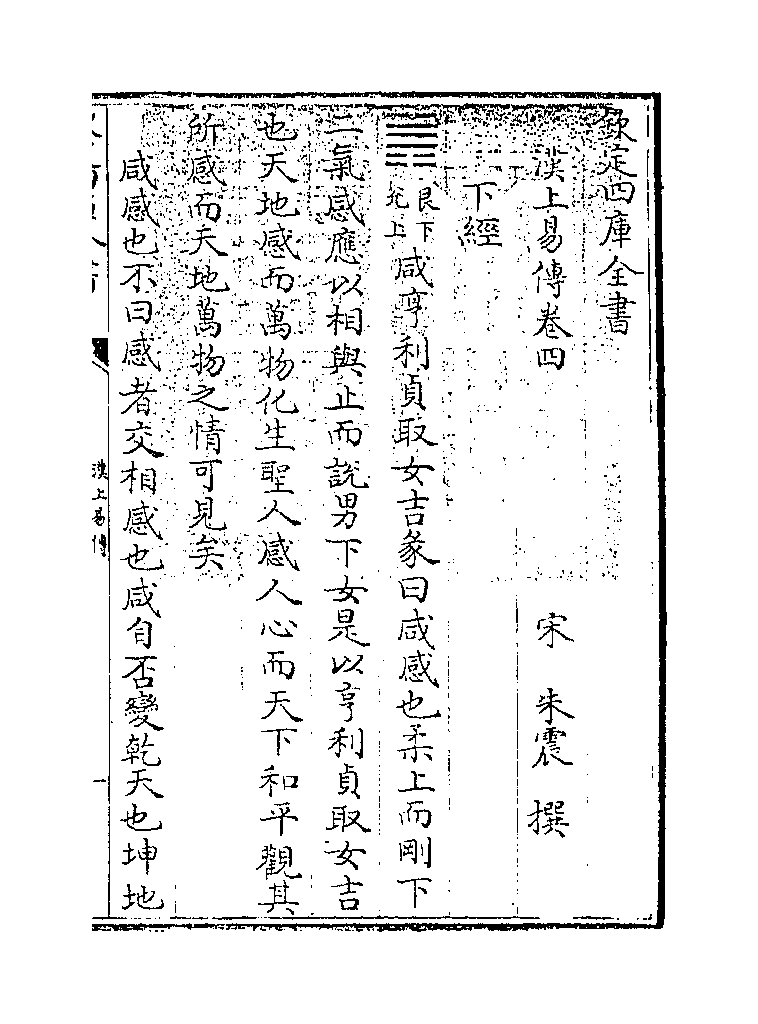 欽定四庫全書
漢上易傳卷四
宋 朱震 撰
下經
䷞艮下兌上咸亨利貞取女吉彖曰咸感也柔上而剛下
二氣感應以相與止而說男下女是以亨利貞取女吉
也天地感而萬物化生聖人感人心而天下和平觀其
所感而天地萬物之情可見矣
咸感也不曰感者交相感也咸自否變乾天也坤地
漢上易傳
一